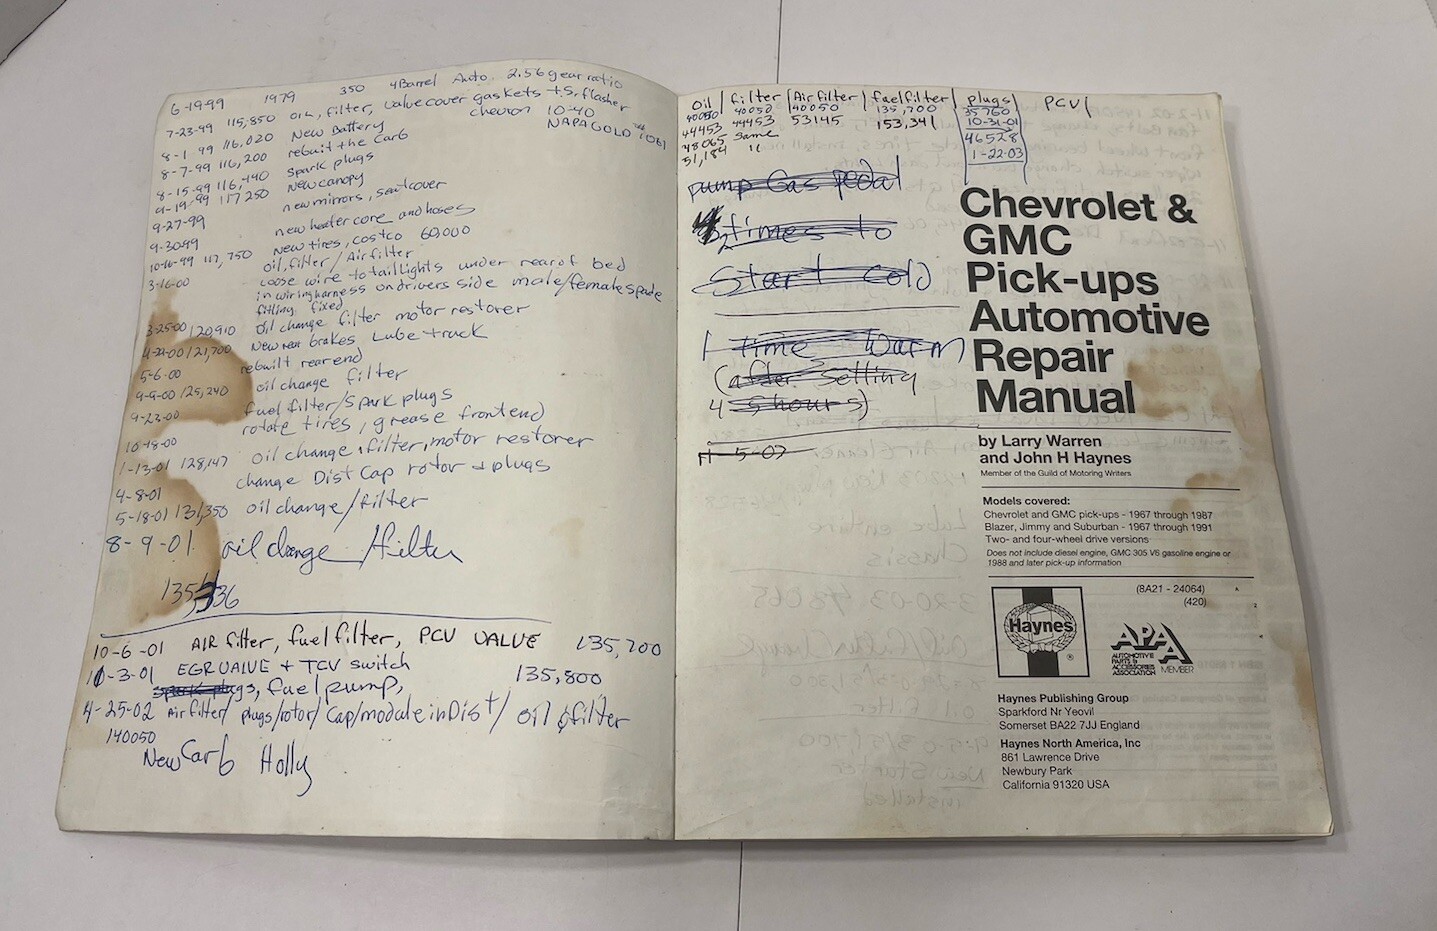 6-19-99 1979 350 4Barrel Auto. 2.56 gear ratio
7-23-99 115,850 oil, filter, valve cover gaskets + s. flasher
chevron 10-40
8-1-99 116,020 New Battery NAPAGOLD 1061
8-7-99 116,200 rebuilt the Carb
8-15-99 116,440 spark plugs
9-19-99 117250 New canopy
9-27-99 new mirrors, seat cover
9-30-99 new heater core and hoses
10-16-99 117,750 New tires, costco 60,000
3-16-00 oil, filter/Air filter
loose wire to taillights under rear of bed
in wiring harness on drivers side male/female spade
fitting fixed
3-25-00/120910 oil change filter motor restorer
4-22-00/121,700 New rear brakes Lube truck
5-6-00 rebuilt rear end
9-9-00/125,240 oil change filter
9-23-00 fuel filter/spark plugs
rotate tires, grease frontend
10-18-00
1-13-01 128,147 oil change, filter, motor restorer
4-8-01 change Dist Cap rotor + plugs
5-18-01 131,350 oil change/filter
8-9-01 oil change/filter
135,336
10-6-01 AIR filter, fuel filter, PCV VALVE 135,700
10-3-01 EGR VALVE + TCV switch 135,800
fuel pump,
4-25-02 Air filter/ plugs/rotor/ Cap/module in Dist/ oil & filter
140050
New Carb Holly
oil | filter | Air filter | fuel filter | plugs | PCV |
40050 40050 40050 135,700 35760
44453 44453 53145 153,341 10-31-01
48065 same 46528
51,184 " 1-22-03
pump Gas pedal
times to
Start Cold
1 time Warm
(after setting
4 5 hours)
11-5-02
Chevrolet &
GMC
Pick-ups
Automotive
Repair
Manual
by Larry Warren
and John H Haynes
Member of the Guild of Motoring Writers
Models covered:
Chevrolet and GMC pick-ups - 1967 through 1987
Blazer, Jimmy and Suburban - 1967 through 1991
Two- and four-wheel drive versions
Does not include diesel engine, GMC 305 V6 gasoline engine or
1988 and later pick-up information
(8A21 - 24064)
(420)
Haynes
®
APAA
AUTOMOTIVE
PARTS &
ACCESSORIES
ASSOCIATION
MEMBER
Haynes Publishing Group
Sparkford Nr Yeovil
Somerset BA22 7JJ England
Haynes North America, Inc
861 Lawrence Drive
Newbury Park
California 91320 USA